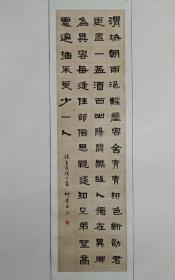 渭城朝雨浥輕塵客舍青青柳色新勸君
更盡一盃酒西出陽關無故人獨在異鄉
為異客每逢佳節倍思親遙知兄弟登高
處遍插茱萸少一人